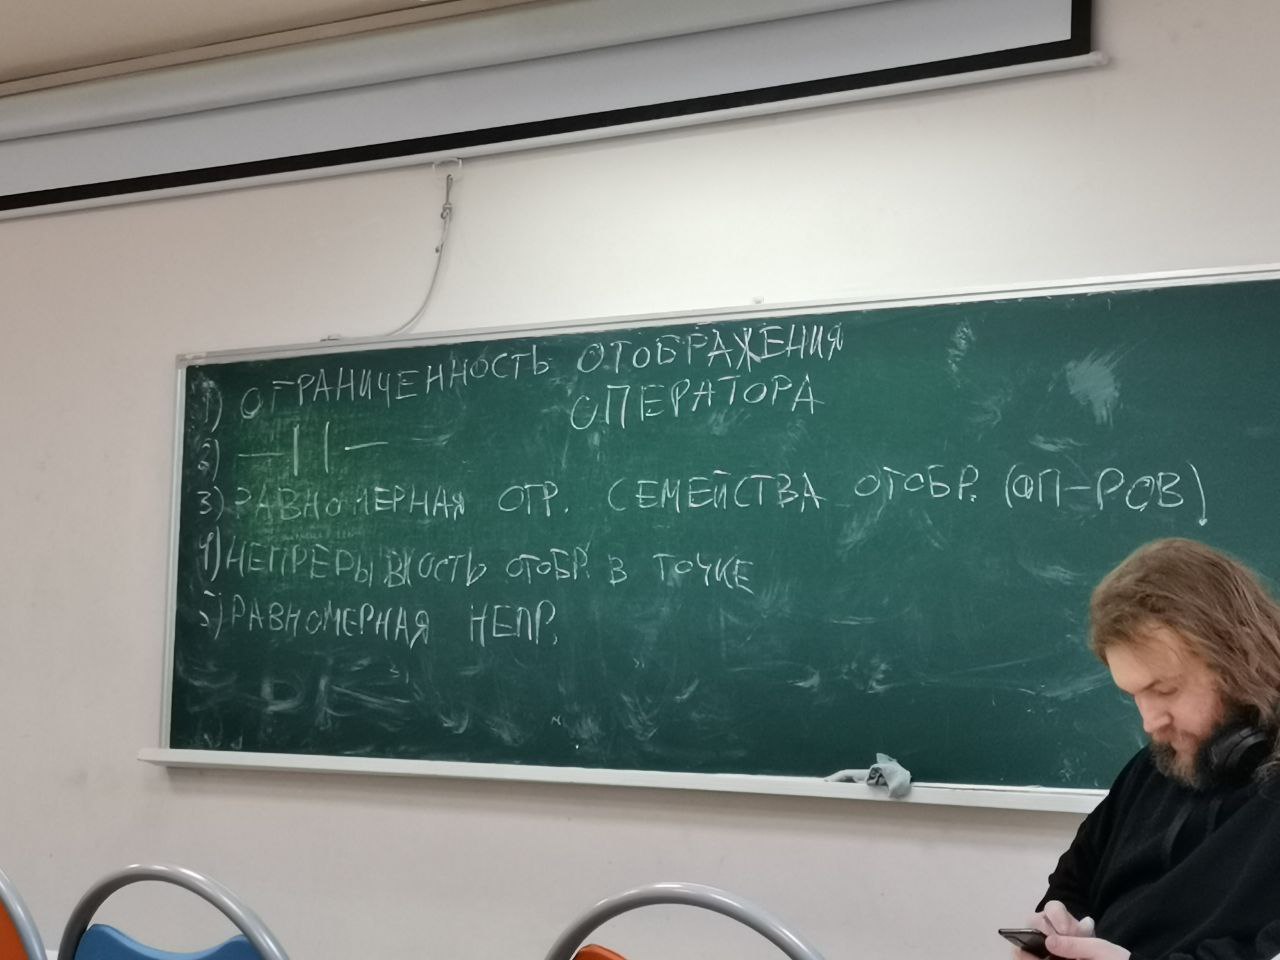 1) ОГРАНИЧЕННОСТЬ ОТОБРАЖЕНИЯ
2) —||— ОПЕРАТОРА
3) РАВНОМЕРНАЯ ОГР. СЕМЕЙСТВА ОТОБР. (ОП-РОВ)
4) НЕПРЕРЫВНОСТЬ ОТОБР. В ТОЧКЕ
5) РАВНОМЕРНАЯ НЕПР.